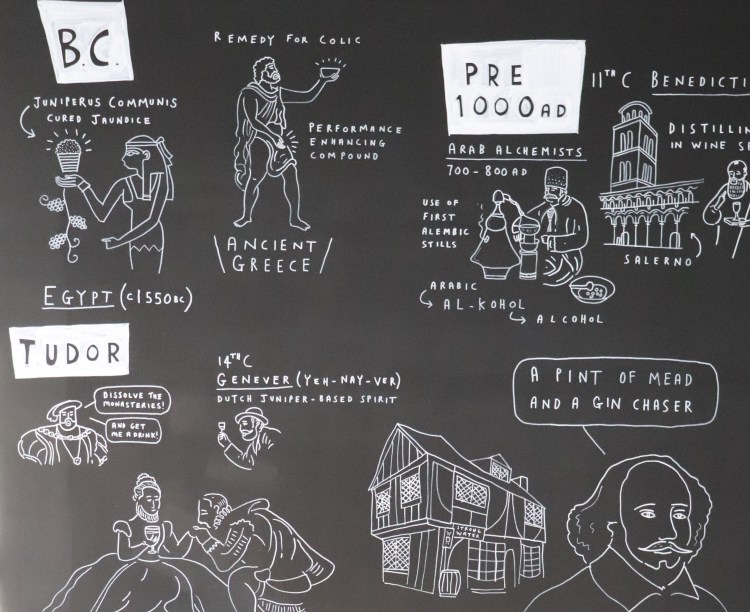 B.C.
JUNIPERUS COMMUNIS
CURED JAUNDICE
EGYPT (c1550BC)
REMEDY FOR COLIC
PERFORMANCE
ENHANCING
COMPOUND
ANCIENT
GREECE
PRE
1000AD
ARAB ALCHEMISTS
700-800AD
USE OF
FIRST
ALEMBIC
STILLS
ARABIC
AL-KOHOL
ALCOHOL
11TH C
DISTILLIN
IN WINE
SALERNO
TUDOR
DISSOLVE THE
MONASTERIES!
AND GET
ME A DRINK!
14TH C
GENEVER (YEH-NAY-VER)
DUTCH JUNIPER-BASED SPIRIT
A PINT OF MEAD
AND A GIN CHASER
STRONG
WATER